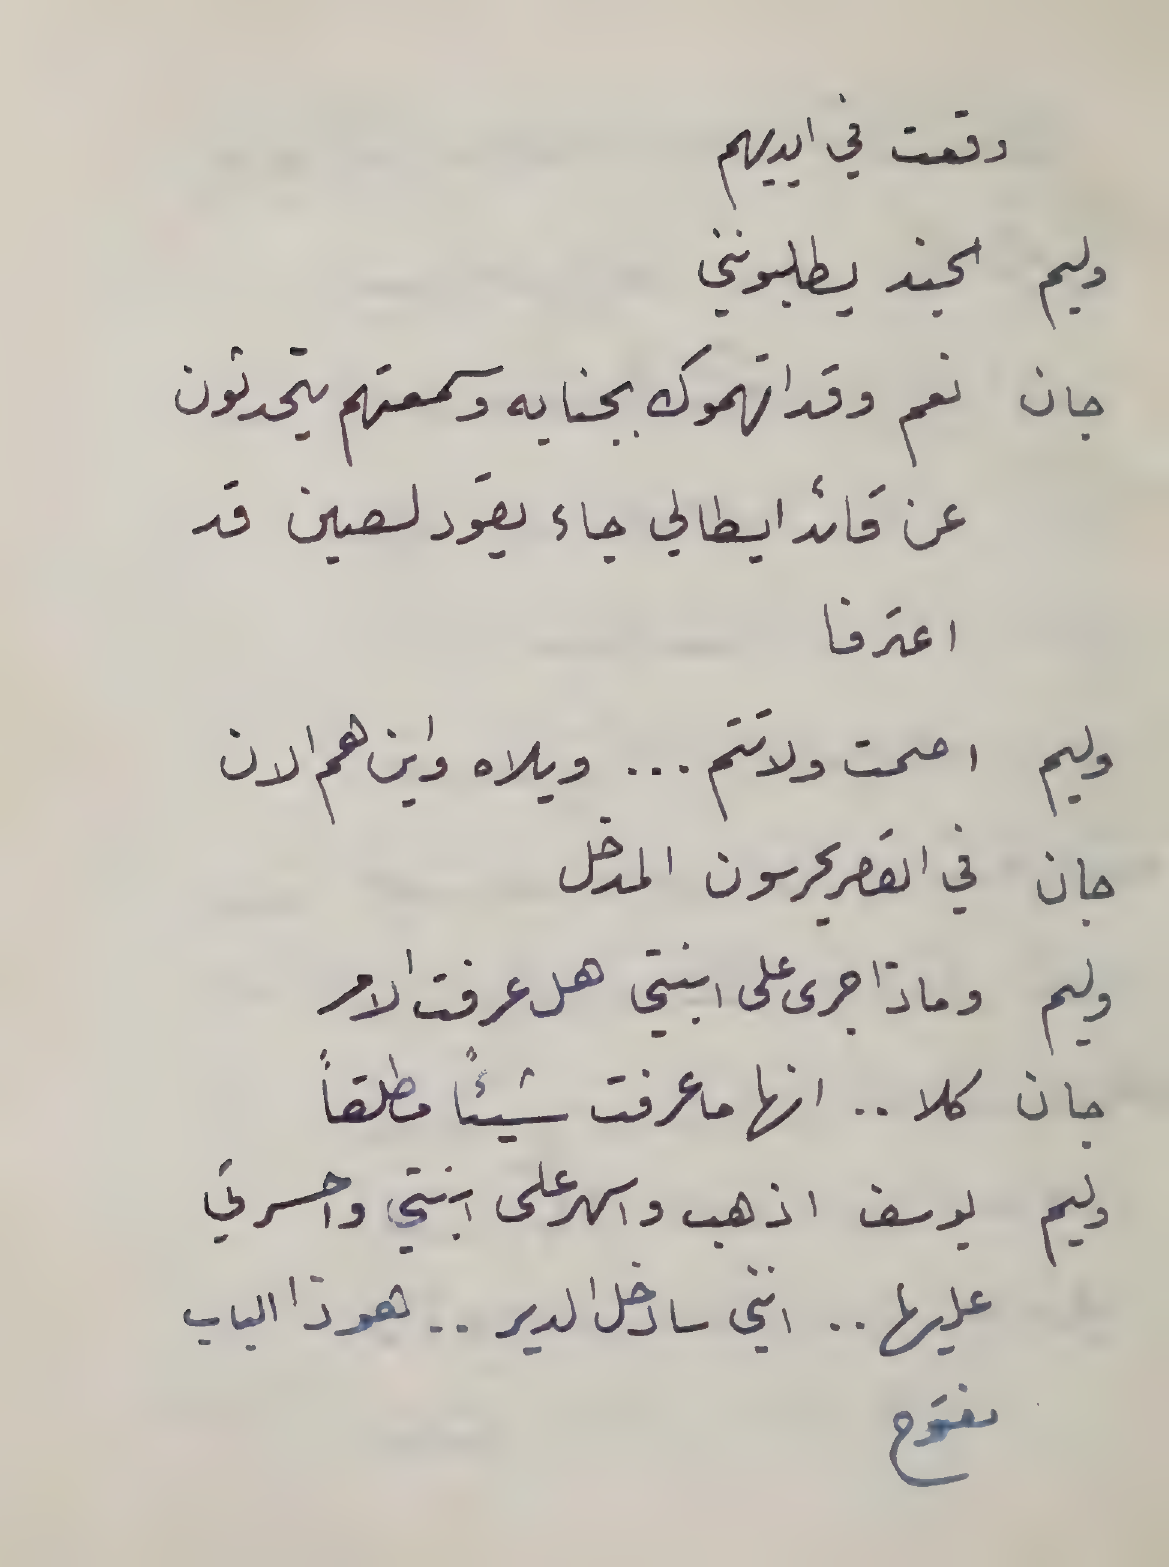 وقعت في ايديهم
وليم الجند يطلبونني
جان نعم وقد اتهموك بجنايه وسمعتهم يتحدثون
عن قائد ايطالي جاء يقود لصين قد
اعترفا
وليم اصمت ولا تتم ... ويلاه واين هم الان
جان في القصر يحرسون المدخل
وليم وماذا جرى على ابنتي هل عرفت الامر
جان كلا .. انها ما عرفت شيئاً مطلقاً
وليم يوسف اذهب واسهر على ابنتي واحسرتي
عليها .. انني سادخل الدير .. هوذا الباب
مفتوح